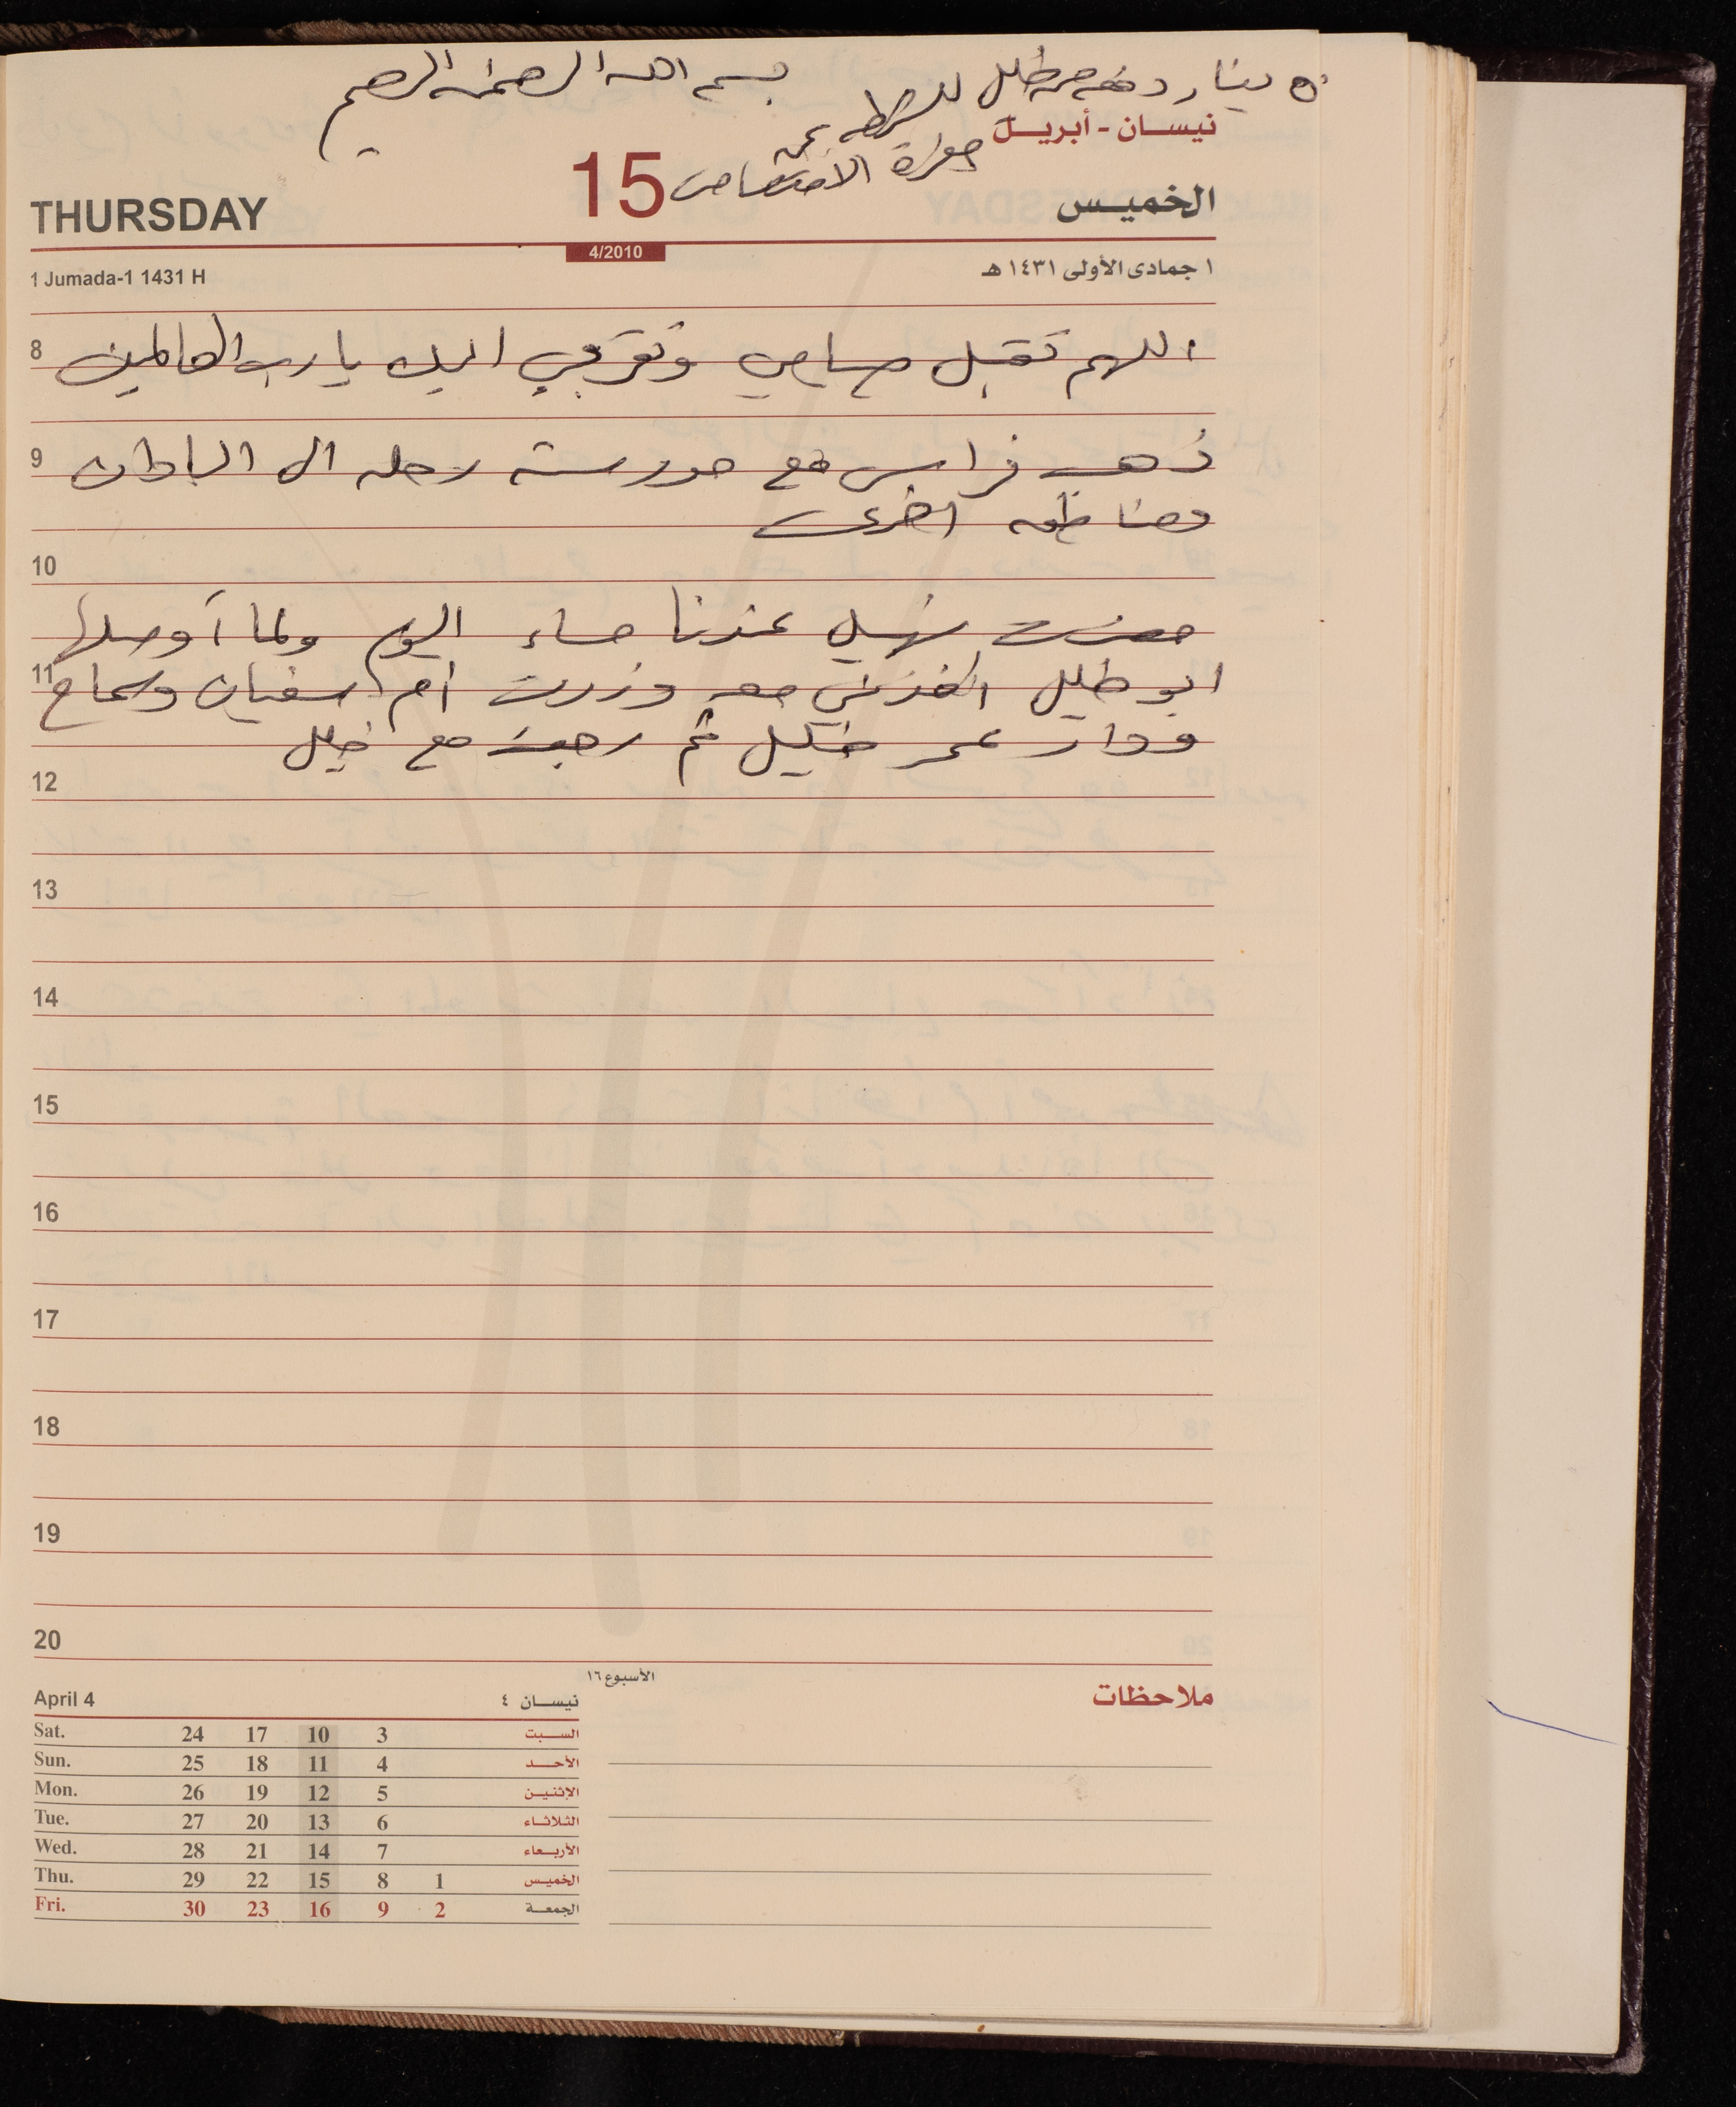 بسم الله الرحمن الرحيم
٥٠ دينار دفعه من خليل للشرطه عن
حفرة الامتصاص
نيسان - أبريل
THURSDAY 15 الخميس
4/2010
1 Jumada-1 1431 H ١ جمادى الأولى ١٤٣١ هـ
8 اللهم تقبل صيامي وتقربي اليك يا رب العالمين
9 ذهب فراس مع مدرسته رحله الى الباذان
ومناطق اخرى
10
حضرت نهيل عندنا مساء اليوم ولما أوصلها
11 ابو خليل اخذني معه وزرت أم سفيان وسماح
ودار عمر خليل ثم رجعت مع خليل
12
13
14
15
16
17
18
19
20
الأسبوع ١٦
ملاحظات
April 4 نيسان ٤
Sat. 24 17 10 3 السبت
Sun. 25 18 11 4 الأحد
Mon. 26 19 12 5 الإثنين
Tue. 27 20 13 6 الثلاثاء
Wed. 28 21 14 7 الأربعاء
Thu. 29 22 15 8 1 الخميس
Fri. 30 23 16 9 2 الجمعة